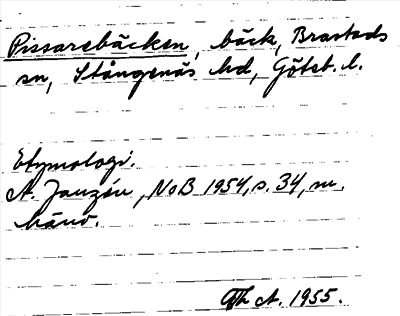 Pissarebäcken, bäck, Brastads
sn, Stångenäs hd, Götet. l.
Etymologi.
A. Janzén, NoB 1954, s. 34, m.
hänv.
A. 1955.